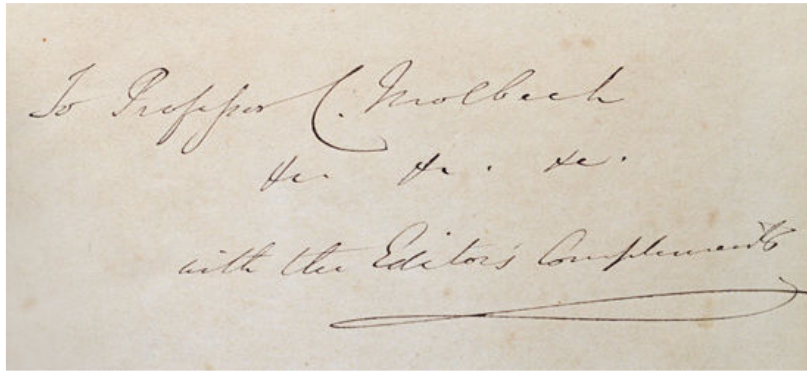 To Professor C. Molbech
&c. &c. &c.
with the Editor's Compliments